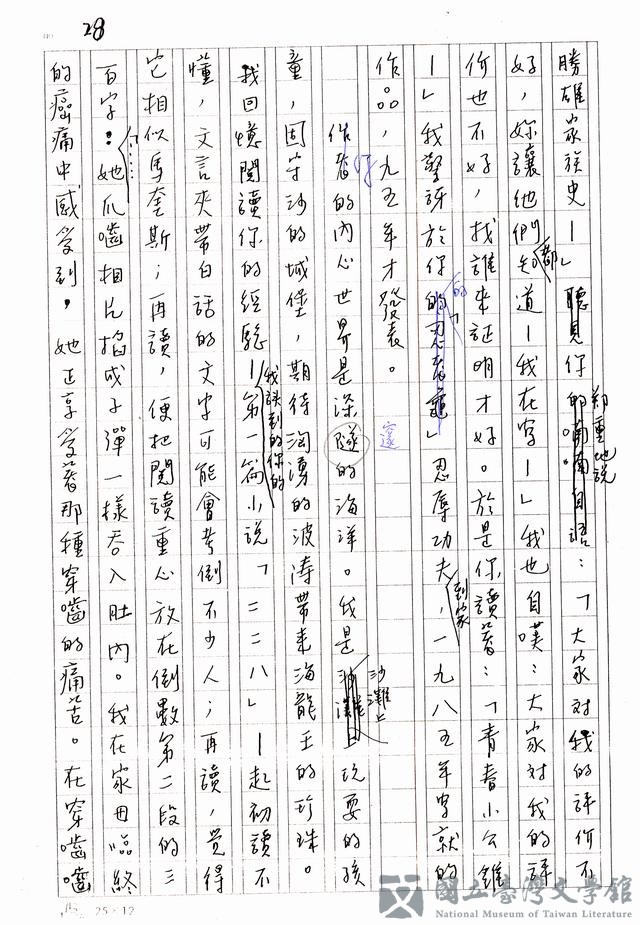 28
勝雄家族史—」鄭重地說:「大家對我的評价不
好,妳讓他們都知道—我在字—」我也自嘆:大家對我的評
价也不好,找誰來証明才好。於是你讀著:「青春小公雞
—」我驚訝於你的「忍辱功夫」到家,一九八五年字就的
作品,九五年才發表。
作者的內心世界是深邃的海洋。我是沙灘上玩耍的孩
童,固守沙的城堡,期待洶湧的波涛帶來海龍王的珍珠。
我回憶閱讀你的經驗—我談到的你的第一篇小說「二二八」—起初讀不
懂,文言夾帶白話的文字可能會考倒不少人;再讀,覺得
它相似馬奎斯;再讀,便把閱讀重心放在倒數第二段的三
百字:「……她爪嚙相片掐成子彈一樣吞入肚內。我在家毌臨終
的癌痛中感受到,她正享受著那種穿嚙的痛苦。在穿嚙嚙
25×12
國立臺灣文學館
National Museum of Taiwan Literature